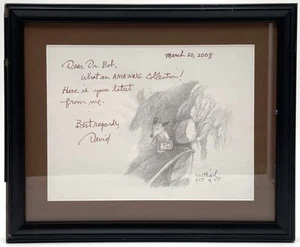 March 20, 2008
Dear Dr. Bob,
What an AMAZING Collection!
Here is your latest
from me.
Best regards,
David